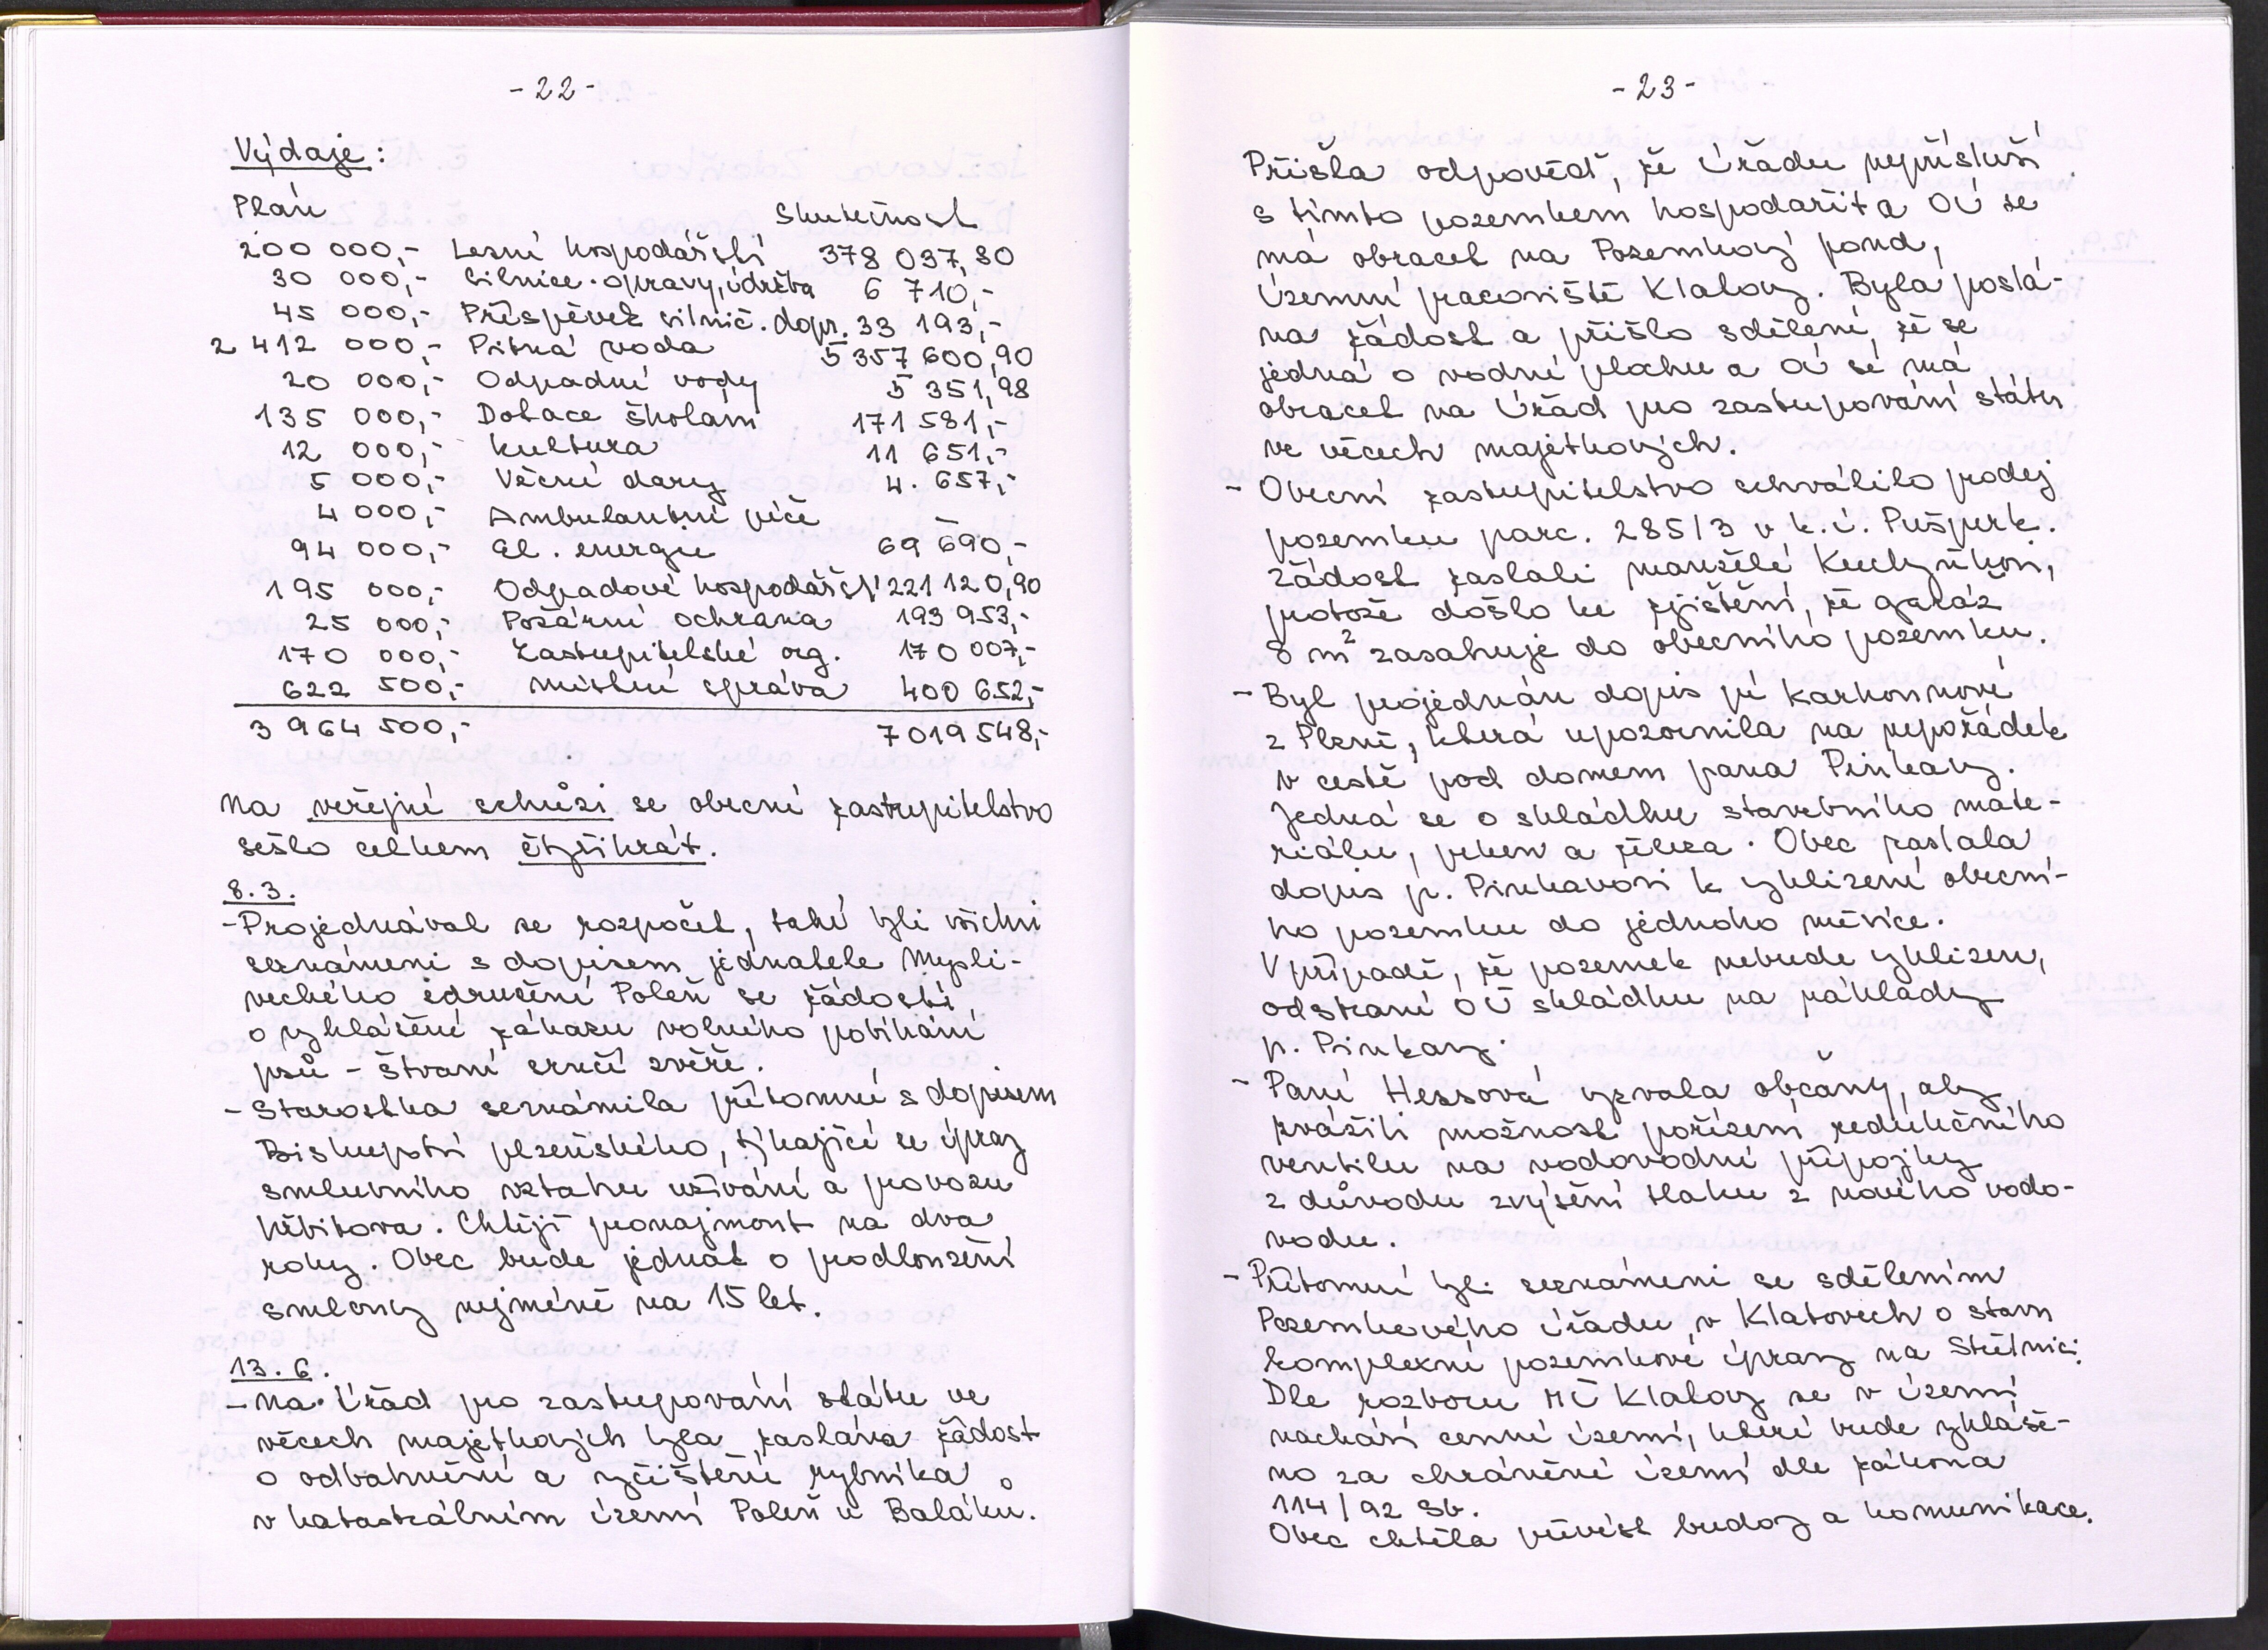 -22-
Výdaje:
Plán Skutečnost
200 000,- Lesní hospodářství 378 037,80
30 000,- Silnice-opravy, údržba 6 710,-
45 000,- Příspěvek silnič. dopr. 33 193,-
2 412 000,- Pitná voda 5 357 600,90
20 000,- Odpadní vody 5 351,98
135 000,- Dotace školám 171 581,-
12 000,- Kultura 11 651,-
5 000,- Věcné dary 4. 657,-
4 000,- Ambulantní péče –
94 000,- El. energie 69 690,-
195 000,- Odpadové hospodářství 221 120,90
25 000,- Požární ochrana 193 953,-
170 000,- Zastupitelské org. 170 007,-
622 500,- místní správa 400 652,-
3 964 500,- 7 019 548,-
Na veřejné schůzi se obecní zastupitelstvo
sešlo celkem čtyřikrát.
8.3.
-Projednával se rozpočet, také byli všichni
seznámeni s dopisem jednatele Mysli-
veckého sdružení Poleň se žádostí
o vyhlášení zákazu volného pobíhání
psů - štvaní srnčí zvěře.
- Starostka seznámila přítomné s dopisem
Biskupství plzeňského, týkající se úpravy
smluvního vztahu užívání a provozu
hřbitova. Chtějí pronajmout na dva
roky. Obec bude jednat o prodloužení
smlouvy nejméně na 15 let.
13.6.
- Na Úřad pro zastupování státu ve
věcech majetkových byla zaslána žádost
o odbahnění a vyčištění rybníka
v katastrálním území Poleň u Baláků.
-23-
Přišla odpověď, že Úřadu nepřísluší
s tímto pozemkem hospodařit a OÚ se
má obracet na Pozemkový fond,
Územní pracoviště Klatovy. Byla poslá-
na žádost a přišlo sdělení, že se
jedná o vodní plochu a OÚ se má
obracet na Úřad pro zastupování státu
ve věcech majetkových.
- Obecní zastupitelstvo schválilo prodej
pozemku parc. 285/3 v k.ú. Pušperk.
Žádost zaslali manželé Kuchyňkovi,
protože došlo ke zjištění, že garáž
8 m² zasahuje do obecního pozemku.
- Byl projednán dopis pí Karhonnové
z Plzně, která upozornila na nepořádek
v cestě pod domem pana Pinkavy.
Jedná se o skládku stavebního mate-
riálu, prken a železa. Obec zaslala
dopis p. Pinkavovi k vyklizení obecní-
ho pozemku do jednoho měsíce.
V případě, že pozemek nebude vyklizen,
odstraní OÚ skládku na náklady
p. Pinkavy.
- Paní Hessová vyzvala občany, aby
zvážili možnost pořízení redukčního
ventilu na vodovodní přípojky
z důvodu zvýšení tlaku z nového vodo-
vodu.
- Přítomní byli seznámeni se sdělením
Pozemkového úřadu v Klatovech o stavu
komplexní pozemkové úpravy na Střítnici.
Dle rozboru MÚ Klatovy se v území
nachází cenné území, které bude vyhláše-
no za chráněné území dle zákona
114/92 Sb.
Obec chtěla převést budovy a komunikace.